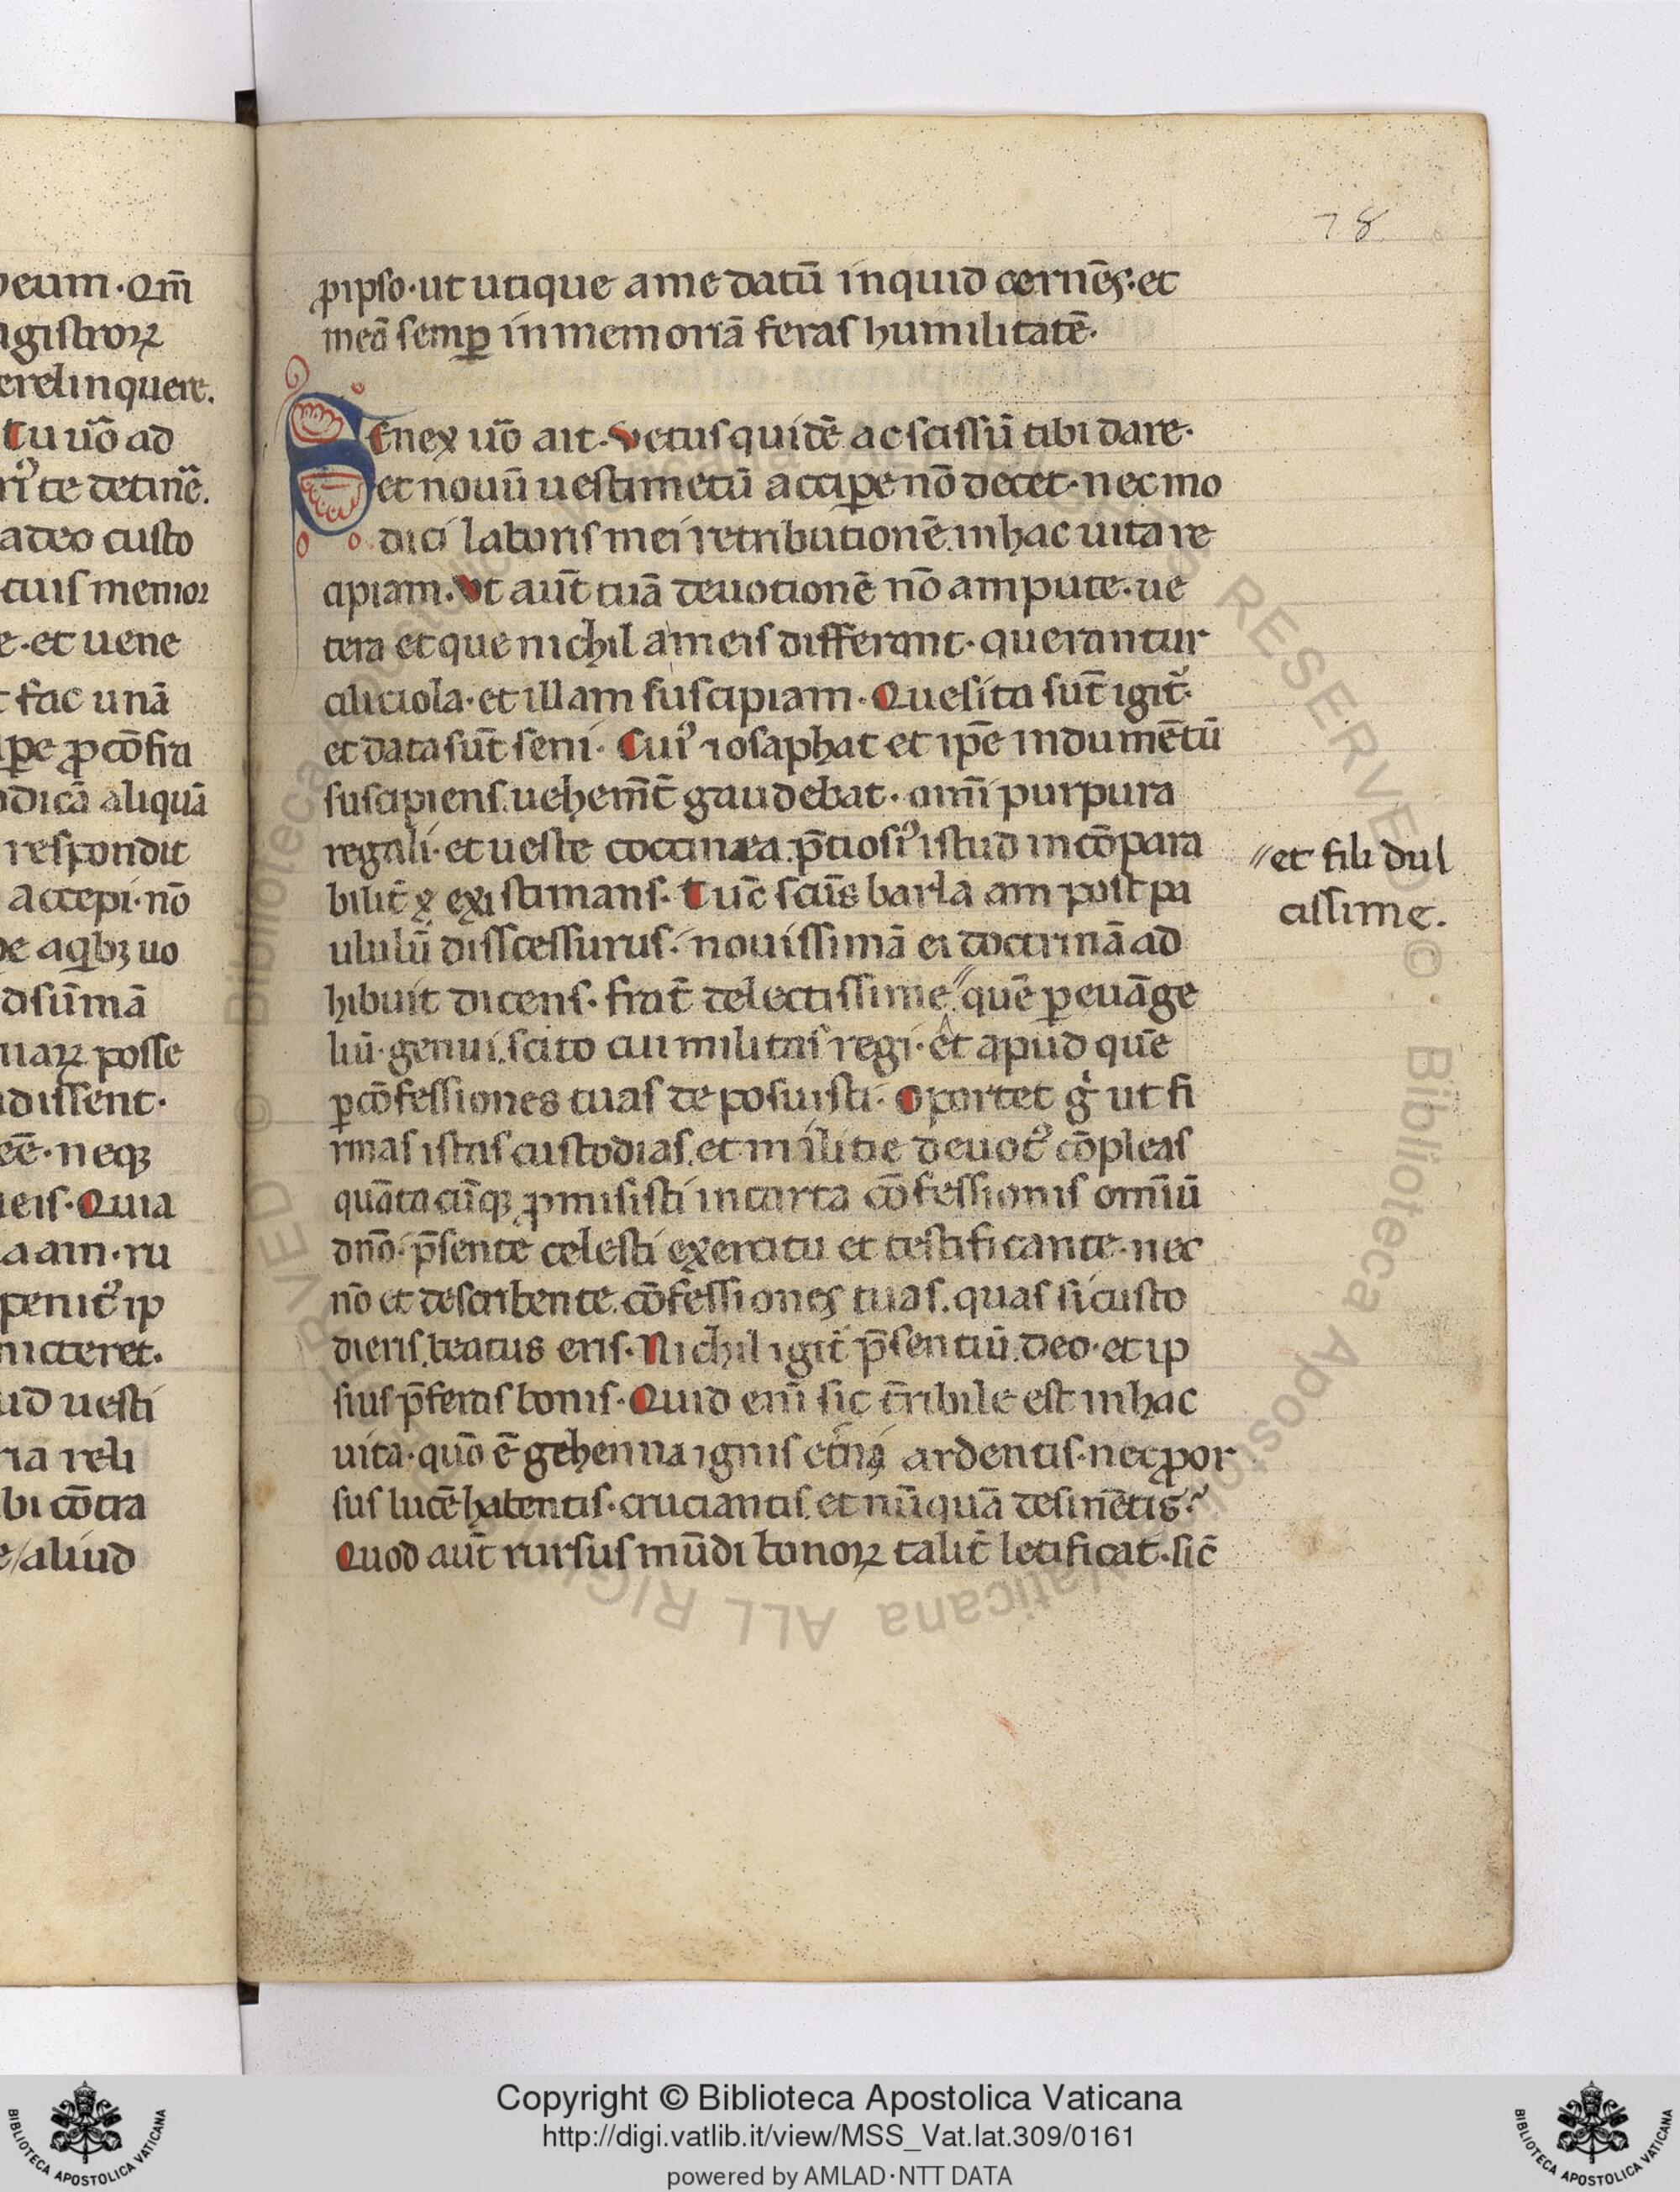 eum · Qm̄
gistroꝝ
erelinquere.
Tu uō ad
te detinē.
adeo custo
cuis memor
e · et uene
fac unā
ꝑpe ꝓ cōfra
odicā aliquā
respondit
accepi · nō
e aqͥbꝫ uo
dsūmā
uaꝝ posse
dissent ·
eē · neqꝫ
eis · Quia
aam · ru
penitꝰ ip
nicteret ·
ud uesti
ria reli
bi cōtra
e/aliud
78
ꝓ ipso · ut utique a me datū inquid cernēs · et
meā semꝑ in memoriā feras humilitatē ·
SEnex uō ait · Vetus quidē ac scissū tibi dare ·
et nouū uestimetū acciꝑe nō decet · nec mo
dici laboris mei retributionē in hac uita re
cipiam · Vt aūt tuā deuotionē nō ampute · ue
tera et que nichil a meis differant · querantur
aliciola · et illam suscipiam · Quesita sūt igit̉ ·
et data sūt seni · Cuiꝰ iosaphat et ip̄e indumētū
suscipiens uehem̄t̄ gaudebat · om̄i purpura
regali · et ueste coccinea p̄ciosiꝰ istud incōpara
bilit̄ existimans · Tūc sc̄us barlaam post pa
ululū disscessurus · nouissimā ei doctrinā ad
hibuit dicens · frat̄ delectissime // quē ꝑ euāge
liū · genui scito cui militas regi · et apud quē
ꝑ cōfessiones tuas deposuisti · Oportet g̊ ut fi
rmas istas custodias et militie deuotꝰ cōpleas
quātacūqꝫ ꝓmisisti in carta cōfessionis omīū
dn̄o · p̄sente celesti exercitu et testificante · nec
nō et describente cōfessiones tuas quas si custo
dieris beatus eris · Nichil igit̄ p̄sentiū deo · et ip
sius p̄feras bonis · Quid enī sic t̄ribile est in hac
uita · quō ē gehenna ignis etⁱnⁱ ardentis · nec ꝓor
sus lucē habentis · cruciantis et nūquā desinētis ?
Quod aūt rursus mūdi bonoꝝ talit̄ letificat · sic̄
// et fili dul
cissime .
Copyright © Biblioteca Apostolica Vaticana
http://digi.vatlib.it/view/MSS_Vat.lat.309/0161
powered by AMLAD·NTT DATA
BIBLIOTECA APOSTOLICA VATICANA
BIBLIOTECA APOSTOLICA VATICANA